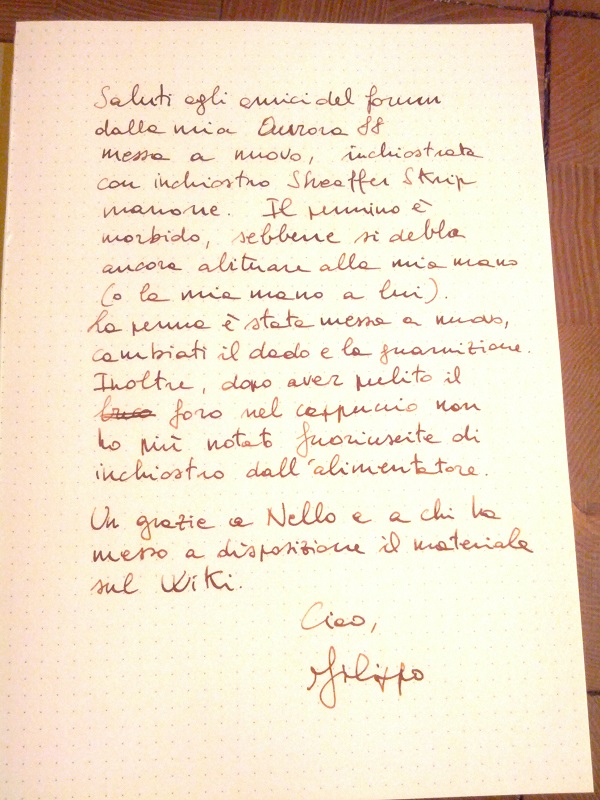 Saluti agli amici del forum
dalla mia Aurora 88
messa a nuovo, inchiostrata
con inchiostro Sheaffer Skrip
marrone. Il pennino è
morbido, sebbene si debba
ancora abituare alla mia mano
(o la mia mano a lui).
La penna è stata messa a nuovo,
cambiati il dado e la guarnizione.
Inoltre, dopo aver pulito il
buco foro nel cappuccio non
ho più notato fuoriuscite di
inchiostro dall'alimentatore.
Un grazie a Nello e a chi ha
messo a disposizione il materiale
sul Wiki.
Ciao,
Filippo